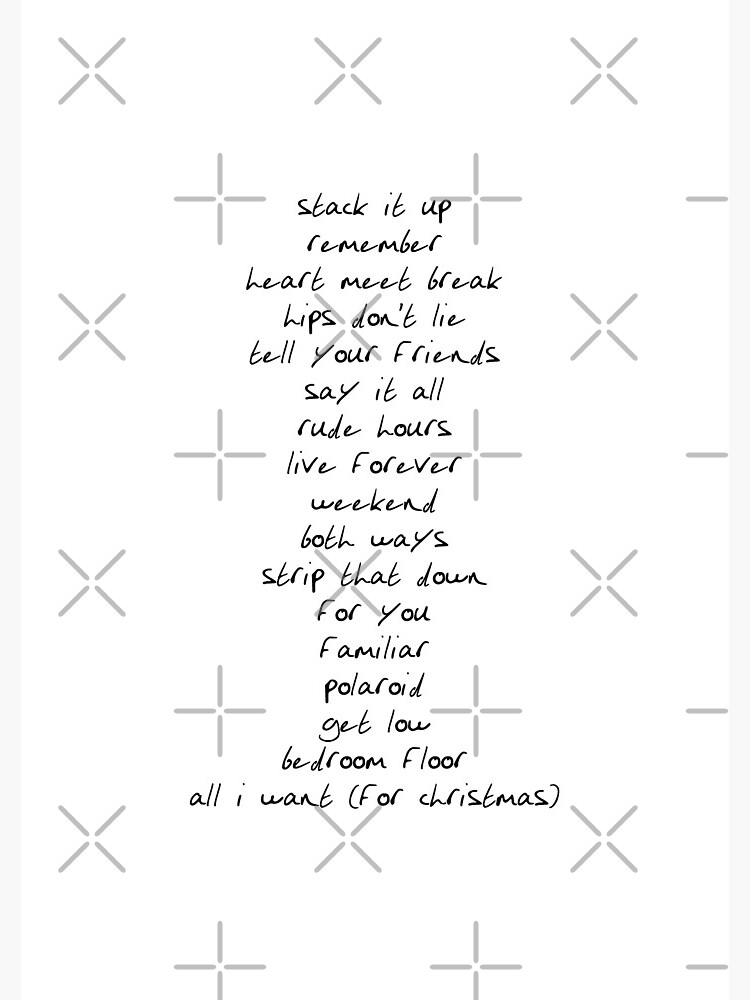 stack it up
remember
heart meet break
hips don't lie
tell your friends
say it all
rude hours
live forever
weekend
both ways
strip that down
for you
familiar
polaroid
get low
bedroom floor
all i want (for christmas)